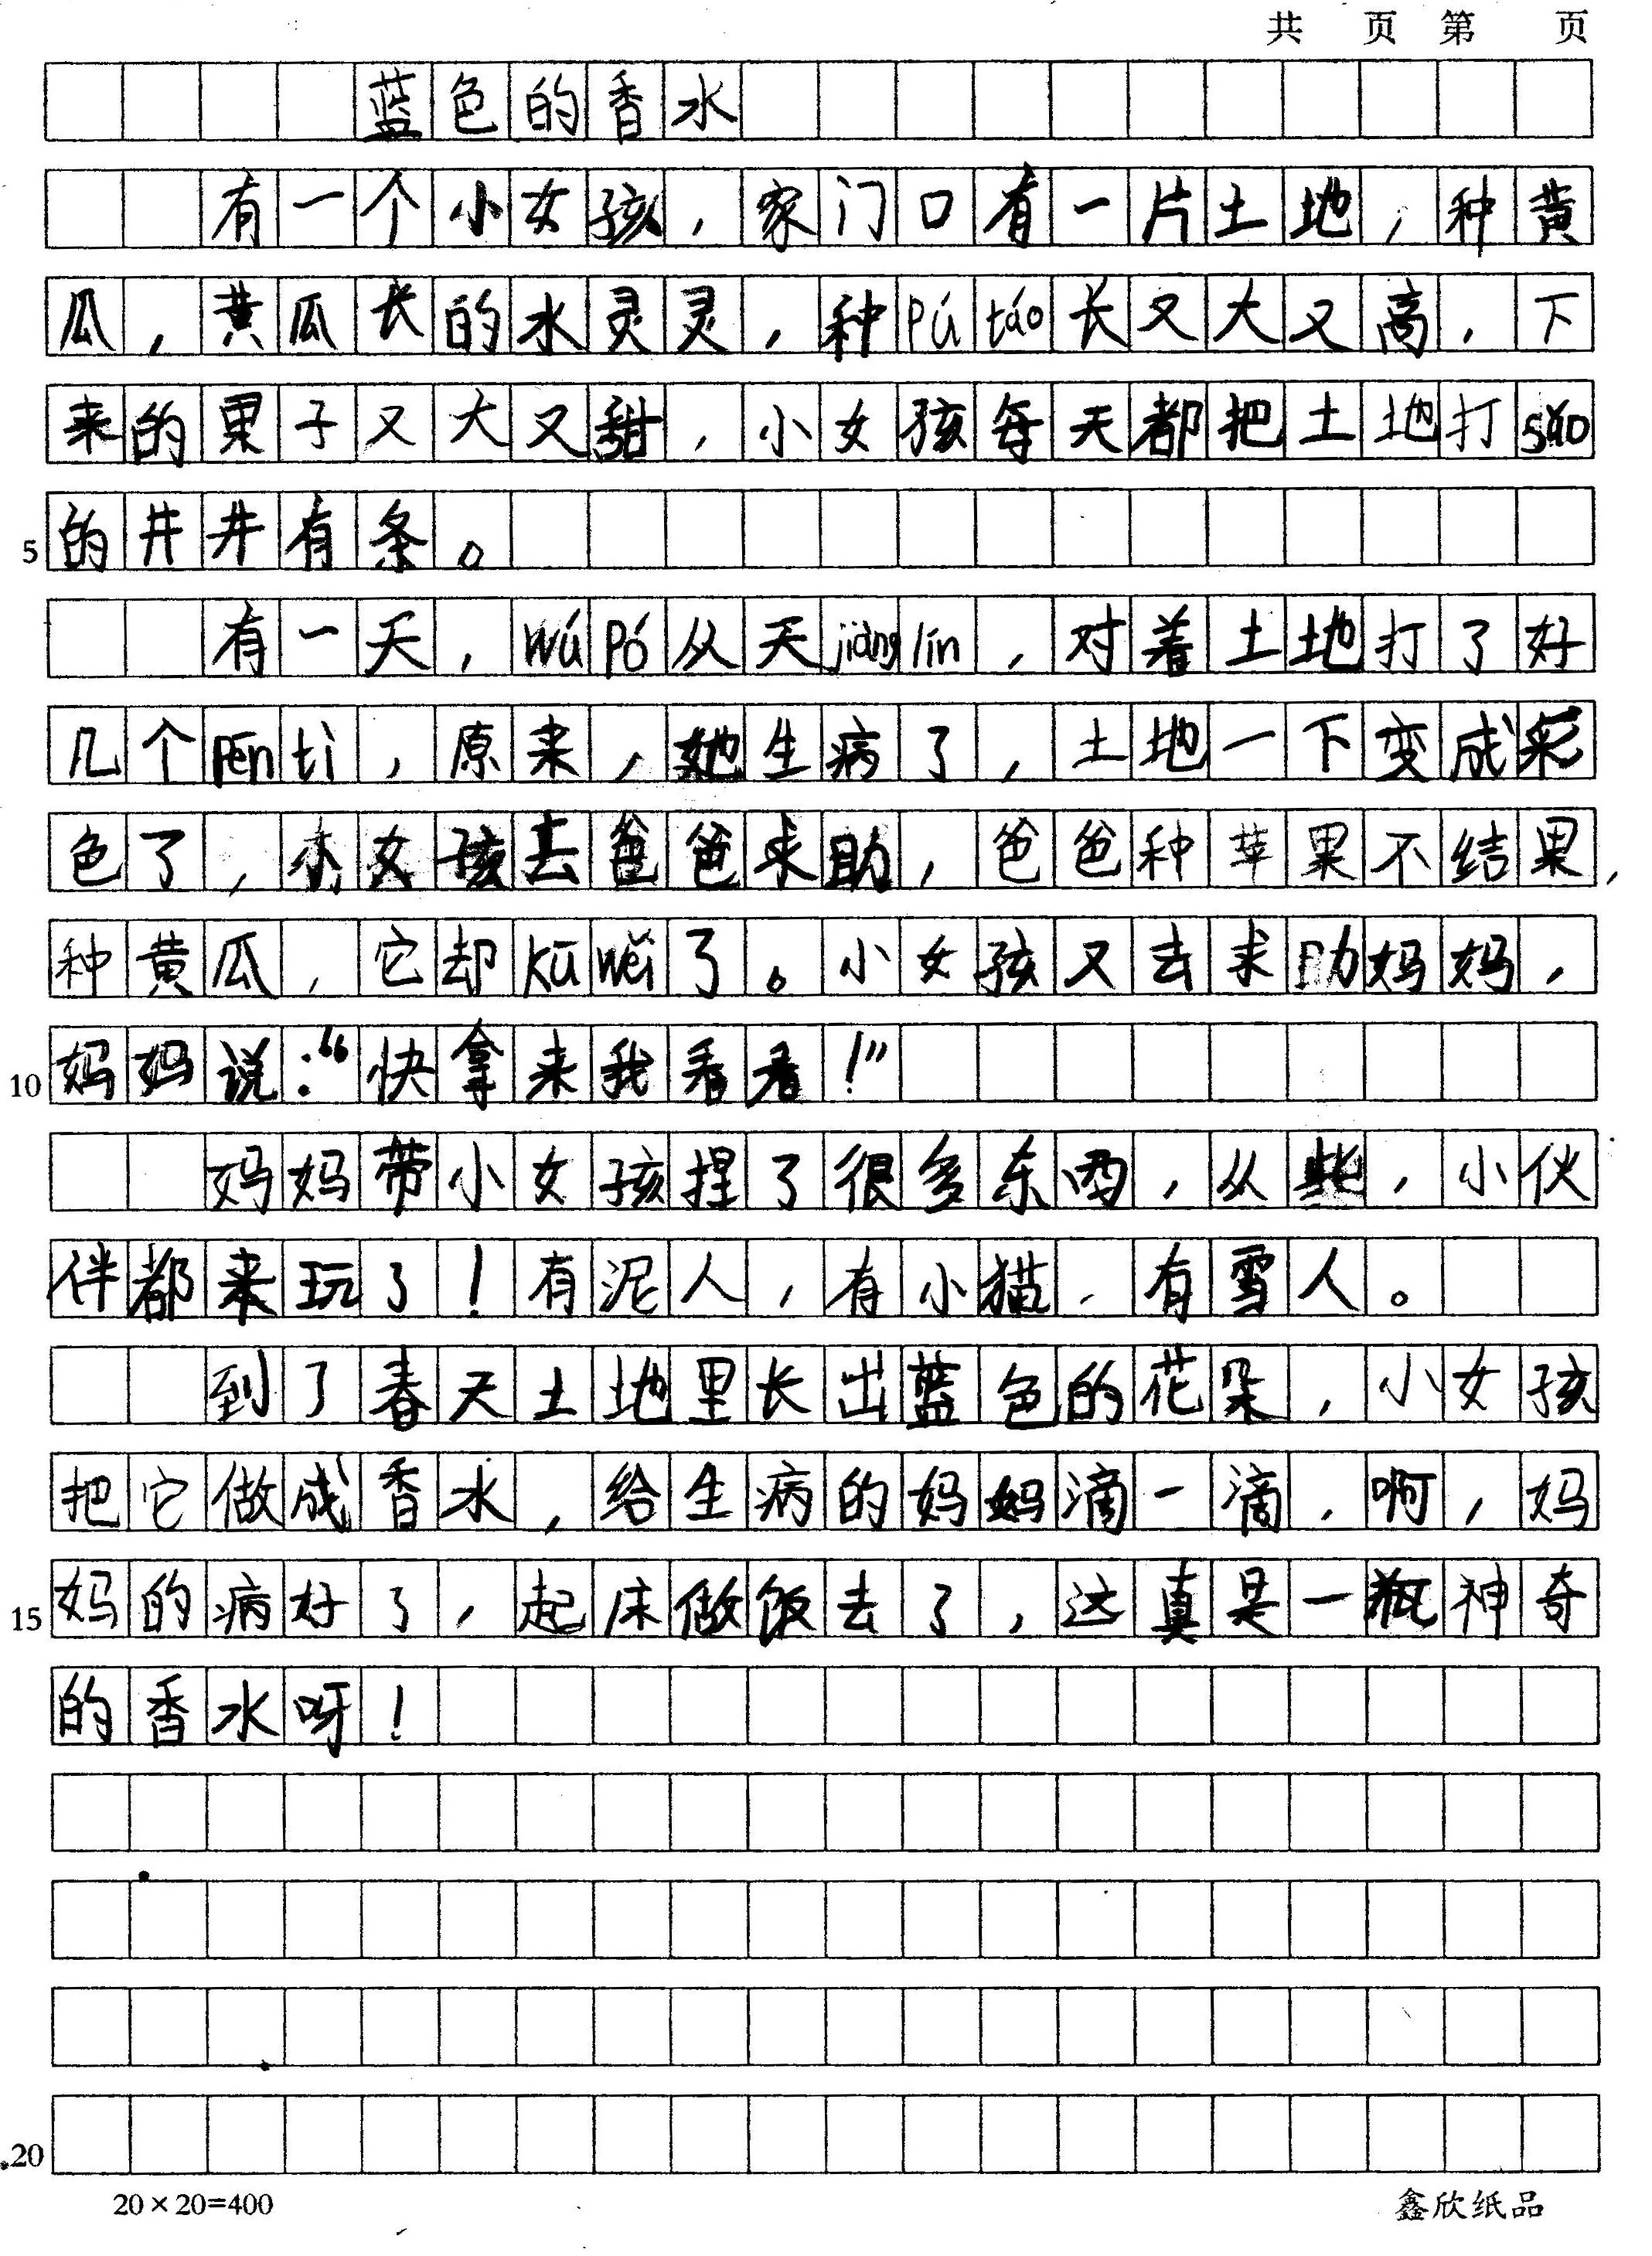 共 页 第 页
蓝色的香水
有一个小女孩，家门口有一片土地，种黄
瓜，黄瓜长的水灵灵，种pú táo长又大又高，下
来的果子又大又甜，小女孩每天都把土地打sǎo
5 的井井有条。
有一天，wú pó从天jiàng lín，对着土地打了好
几个pēn tì，原来，她生病了，土地一下变成彩
色了，小女孩去爸爸求助，爸爸种苹果不结果，
种黄瓜，它却kū wěi了。小女孩又去求助妈妈，
10 妈妈说：“快拿来我看看！”
妈妈带小女孩捏了很多东西，从些，小伙
伴都来玩了！有泥人，有小猫，有雪人。
到了春天土地里长出蓝色的花朵，小女孩
把它做成香水，给生病的妈妈滴一滴，啊，妈
15 妈的病好了，起床做饭去了，这真是一瓶神奇
的香水呀！
20
20×20=400 鑫欣纸品